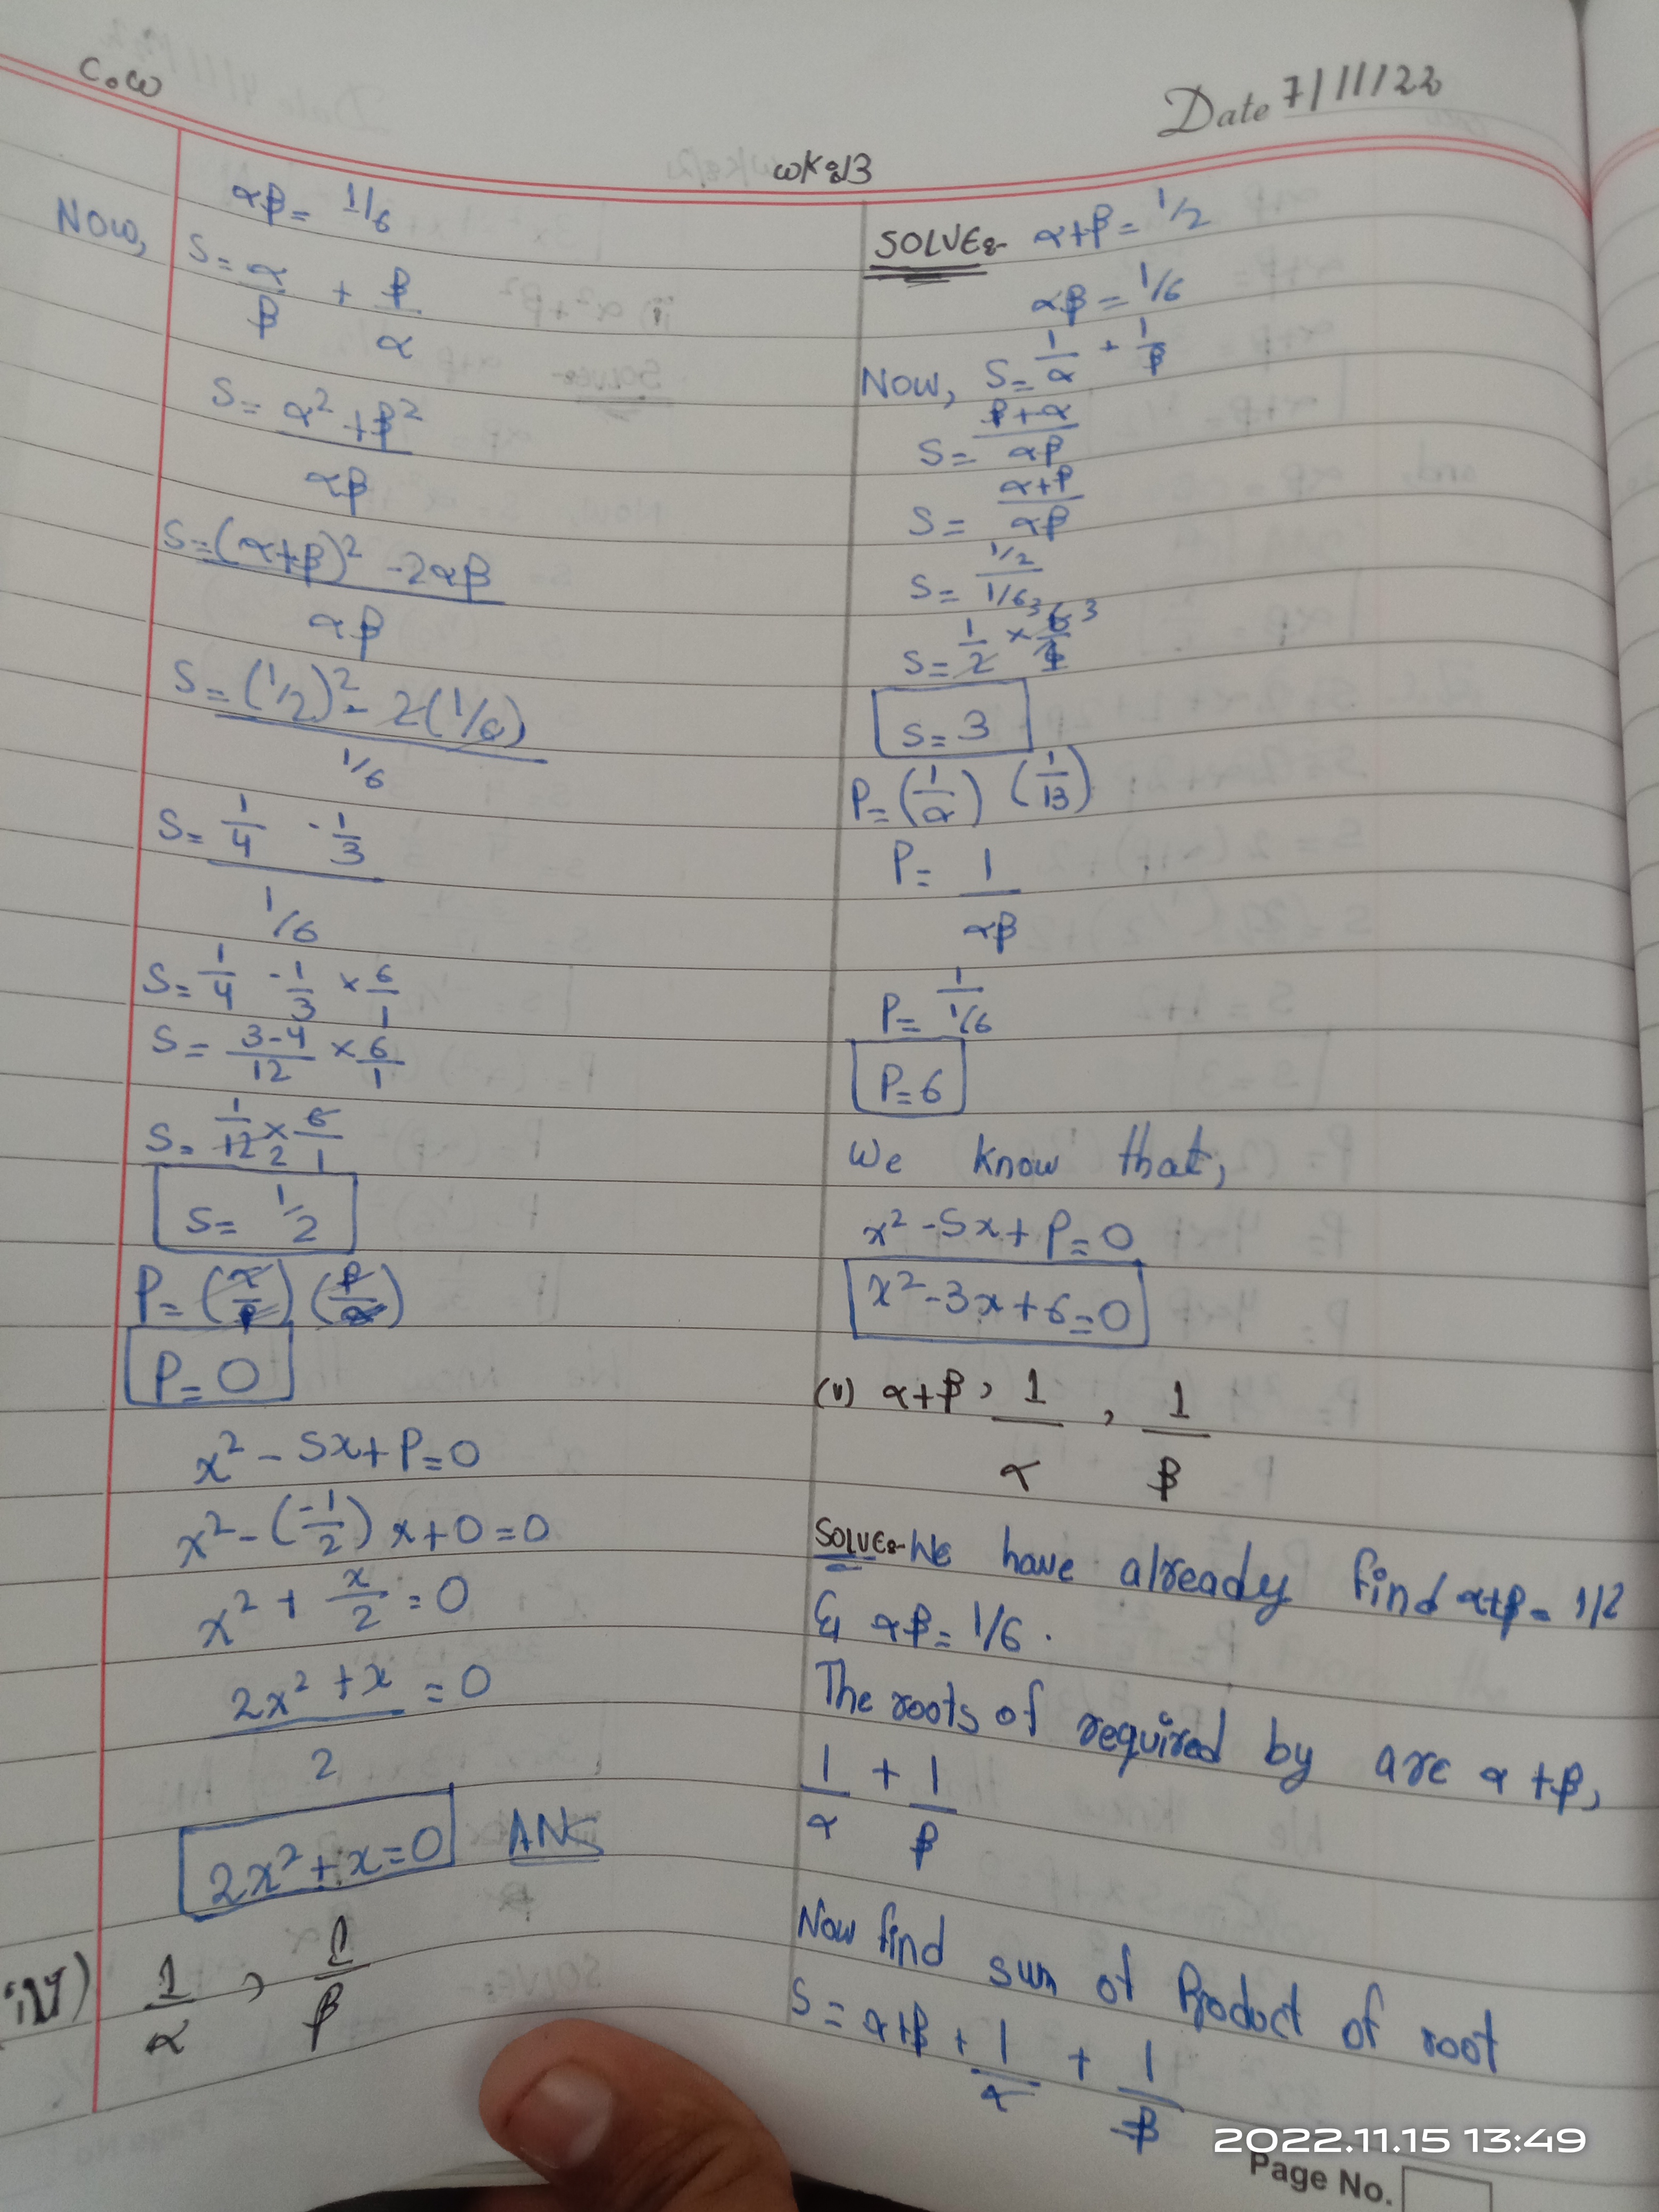 C.W
Date 7/11/22
WK:13
αβ = 1/6
Now,
S = α/β + β/α
S = α² + β² / αβ
S = (α+β)² - 2αβ / αβ
S = (1/2)² - 2(1/6) / 1/6
S = 1/4 - 1/3 / 1/6
S = 1/4 - 1/3 × 6/1
S = 3-4/12 × 6/1
S = 1/12 2 × 6/1
S = 1/2
P = (α/β) (β/α)
P = 0
x² - Sx + P = 0
x² - (-1/2) x + 0 = 0
x² + x/2 = 0
2x² + x / 2 = 0
2x² + x = 0 ANS
iv) 1/α , 1/β
SOLVE:- α+β = 1/2
αβ = 1/6
Now, S = 1/α + 1/β
S = β+α/αβ
S = α+β/αβ
S = 1/2 / 1/6
S = 1/2 × 6/1 3
S = 3
P = (1/α) (1/13)
P = 1/αβ
P = 1 / 1/6
P = 6
We know that,
x² - Sx + P = 0
x² - 3x + 6 = 0
(v) α+β, 1/α , 1/β
SOLVE:- We have already find α+β = 1/2
& αβ = 1/6 .
The roots of required by are α+β,
1/α + 1/β
Now find sum of Product of root
S = α+β + 1/α + 1/β
2022.11.15 13:49
Page No.